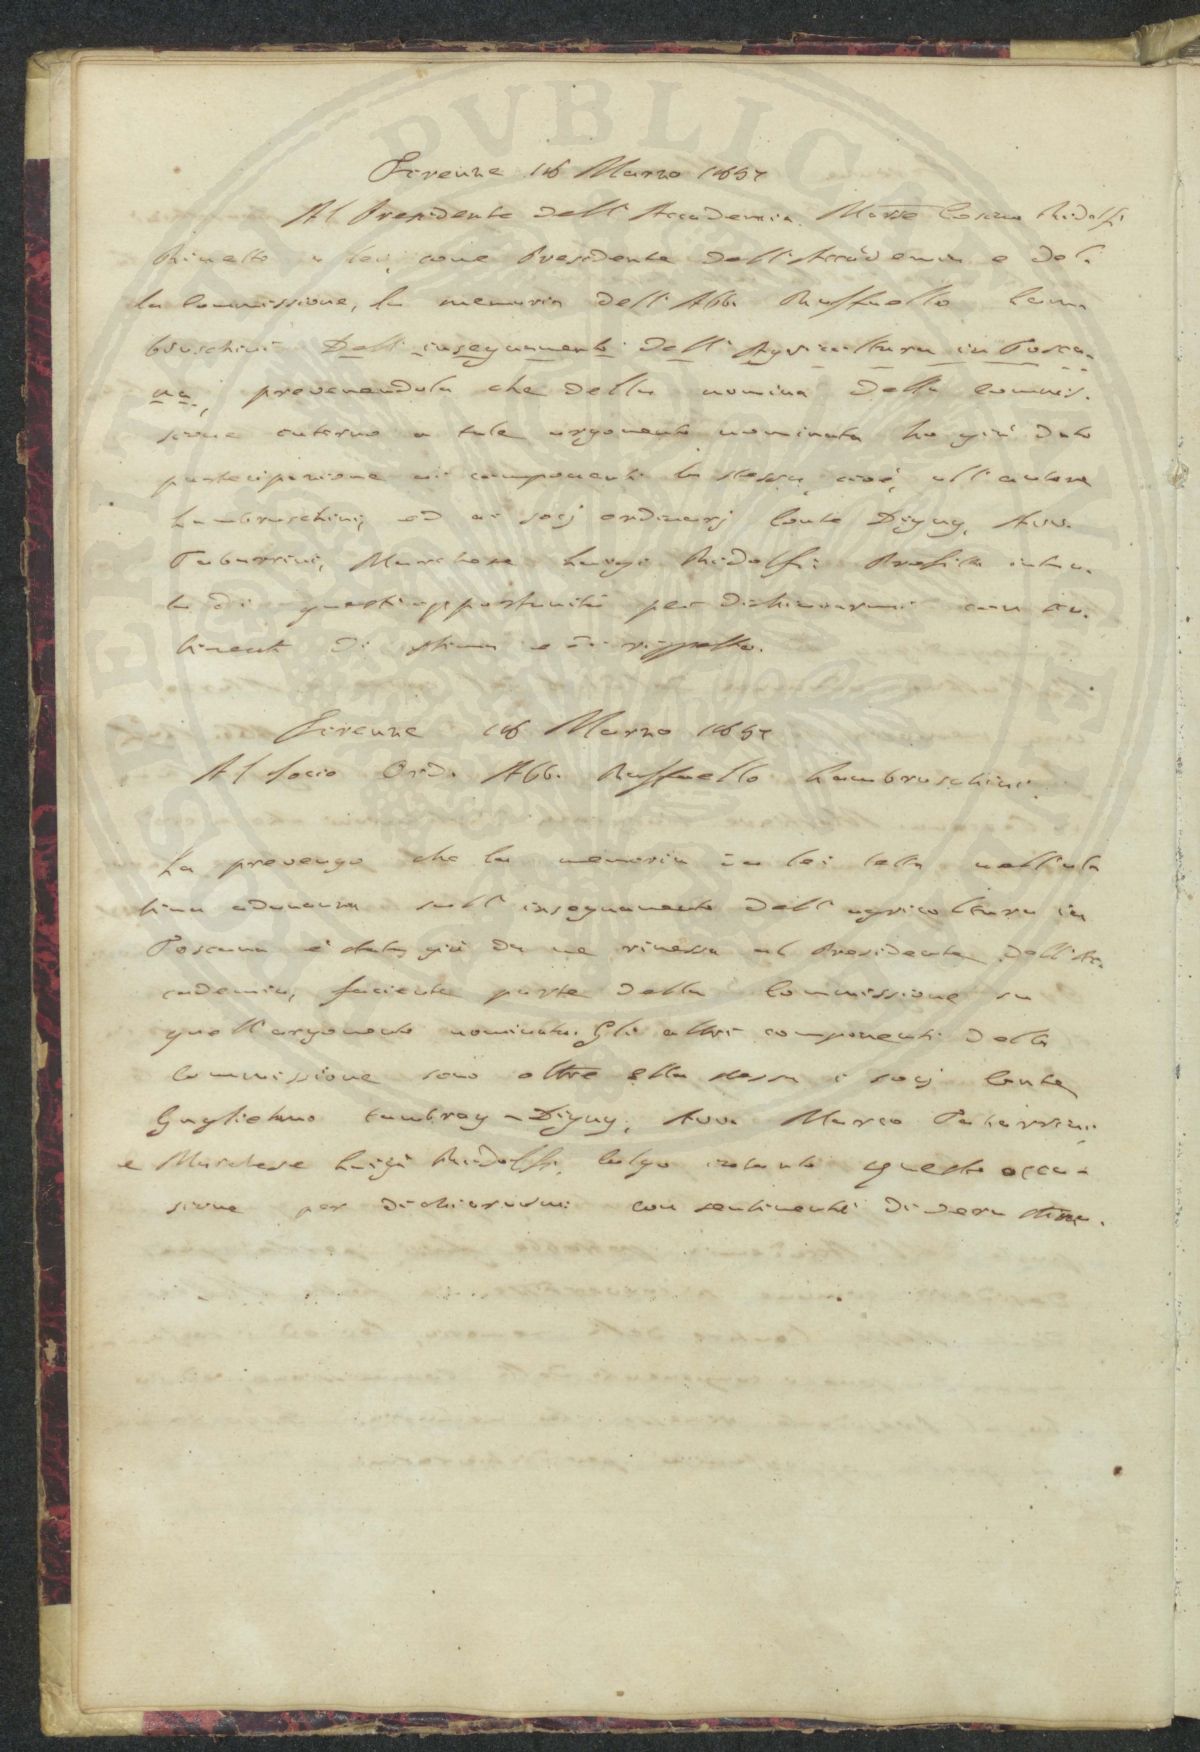 Firenze 18 Marzo 1857
Al Presidente dell'Accademia Marse Cosimo Ridolfi
Rimetto a Lei, come Presidente dell'Accademia e del-
la Commissione, la memoria dell'Abb. Raffaello Lam
bruschini Dell'insegnamento dell'Agricoltura in Tosca-
na, prevenendola che della nomina della Commis-
sione intorno a tale argomento nominata ho già dato
partecipazione ai componenti la stessa, cioè, all'autore
Lambruschini, ed ai socj ordinarj Conte Digny, Avv.
Tabarrini, Marchese Luigi Ridolfi. Profitto intan-
to di quest'opportunità per dichiararmi con sen-
timenti di stima e di rispetto.
Firenze 18 Marzo 1857
Al Socio Ord. Abb. Raffaello Lambruschini.
La prevengo che la memoria da Lei letta nell'ul
tima adunanza sull'insegnamento dell'agricoltura in
Toscana è stata già da me rimessa al Presidente dell'Ac-
cademia, faciente parte della Commissione su
quell'argomento nominata. Gli altri componenti della
Commissione sono oltre ella stessa i socj Conte
Guglielmo Cambray-Digny, Avv. Marco Tabarrini,
e Marchese Luigi Ridolfi. Colgo intanto questa occa-
sione per dichiararmi con sentimenti di vera stima.
PUBLICAE